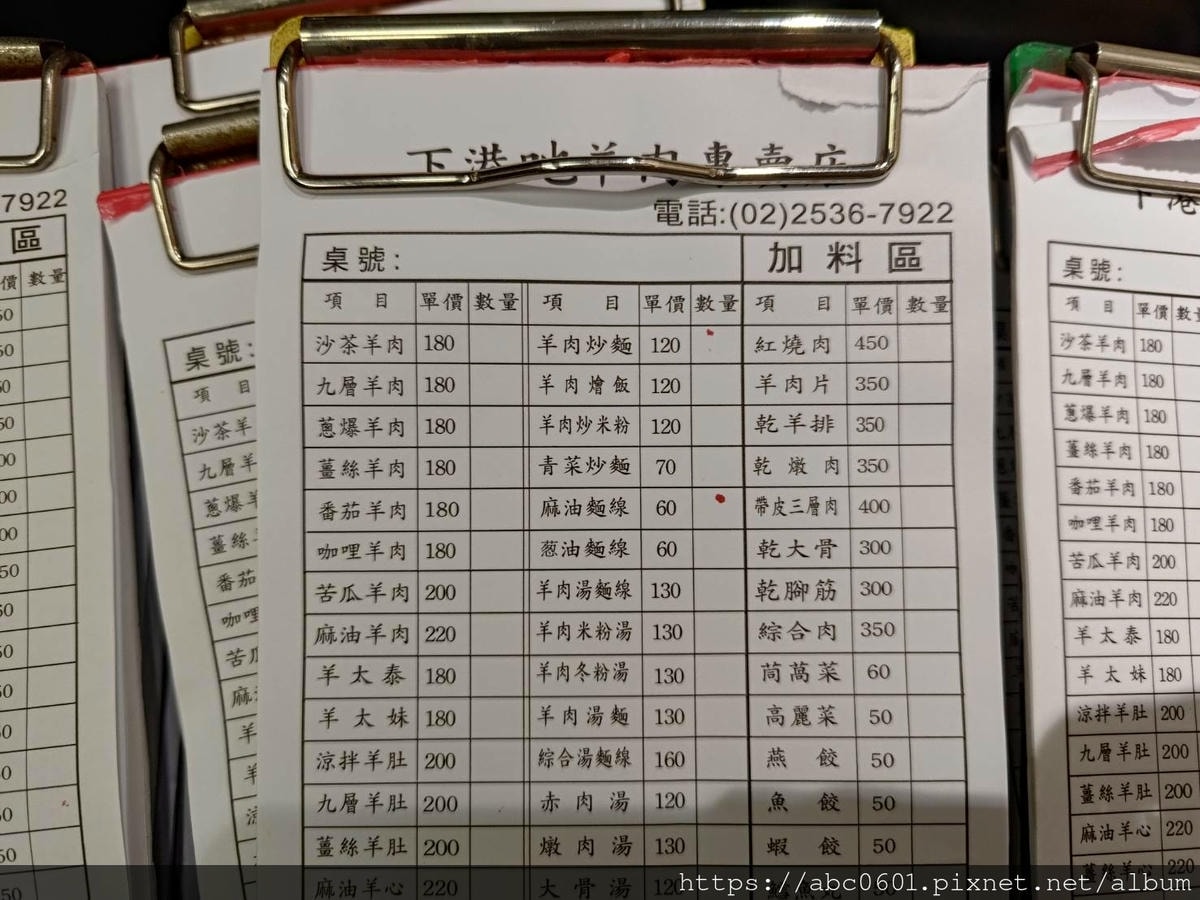 下港吔羊肉專賣店
電話:(02)2536-7922
桌號: 加料區
項目 單價 數量 項目 單價 數量 項目 單價 數量
沙茶羊肉 180 羊肉炒麵 120 紅燒肉 450
九層羊肉 180 羊肉燴飯 120 羊肉片 350
蔥爆羊肉 180 羊肉炒米粉 120 乾羊排 350
薑絲羊肉 180 青菜炒麵 70 乾燉肉 350
番茄羊肉 180 麻油麵線 60 帶皮三層肉 400
咖哩羊肉 180 葱油麵線 60 乾大骨 300
苦瓜羊肉 200 羊肉湯麵線 130 乾腳筋 300
麻油羊肉 220 羊肉米粉湯 130 綜合肉 350
羊太泰 180 羊肉冬粉湯 130 茼萵菜 60
羊太妹 180 羊肉湯麵 130 高麗菜 50
涼拌羊肚 200 綜合湯麵線 160 燕餃 50
九層羊肚 200 赤肉湯 120 魚餃 50
薑絲羊肚 200 燉肉湯 130 蝦餃 50
麻油羊心 220 大骨湯 120
7922
區
價 數量
桌號:
項目
沙茶羊
九層羊
蔥爆
薑絲
番茄
咖哩
苦
麻
羊
下港
桌號:
項目 單價 數
沙茶羊肉 180
九層羊肉 180
蔥爆羊肉 180
薑絲羊肉 180
番茄羊肉 180
咖哩羊肉 180
苦瓜羊肉 200
麻油羊肉 220
羊太泰 180
羊太妹 180
涼拌羊肚 200
九層羊肚 200
薑絲羊肚 200
麻油羊心 220
薑絲羊心 220
https://abc0601.pixnet.net/album